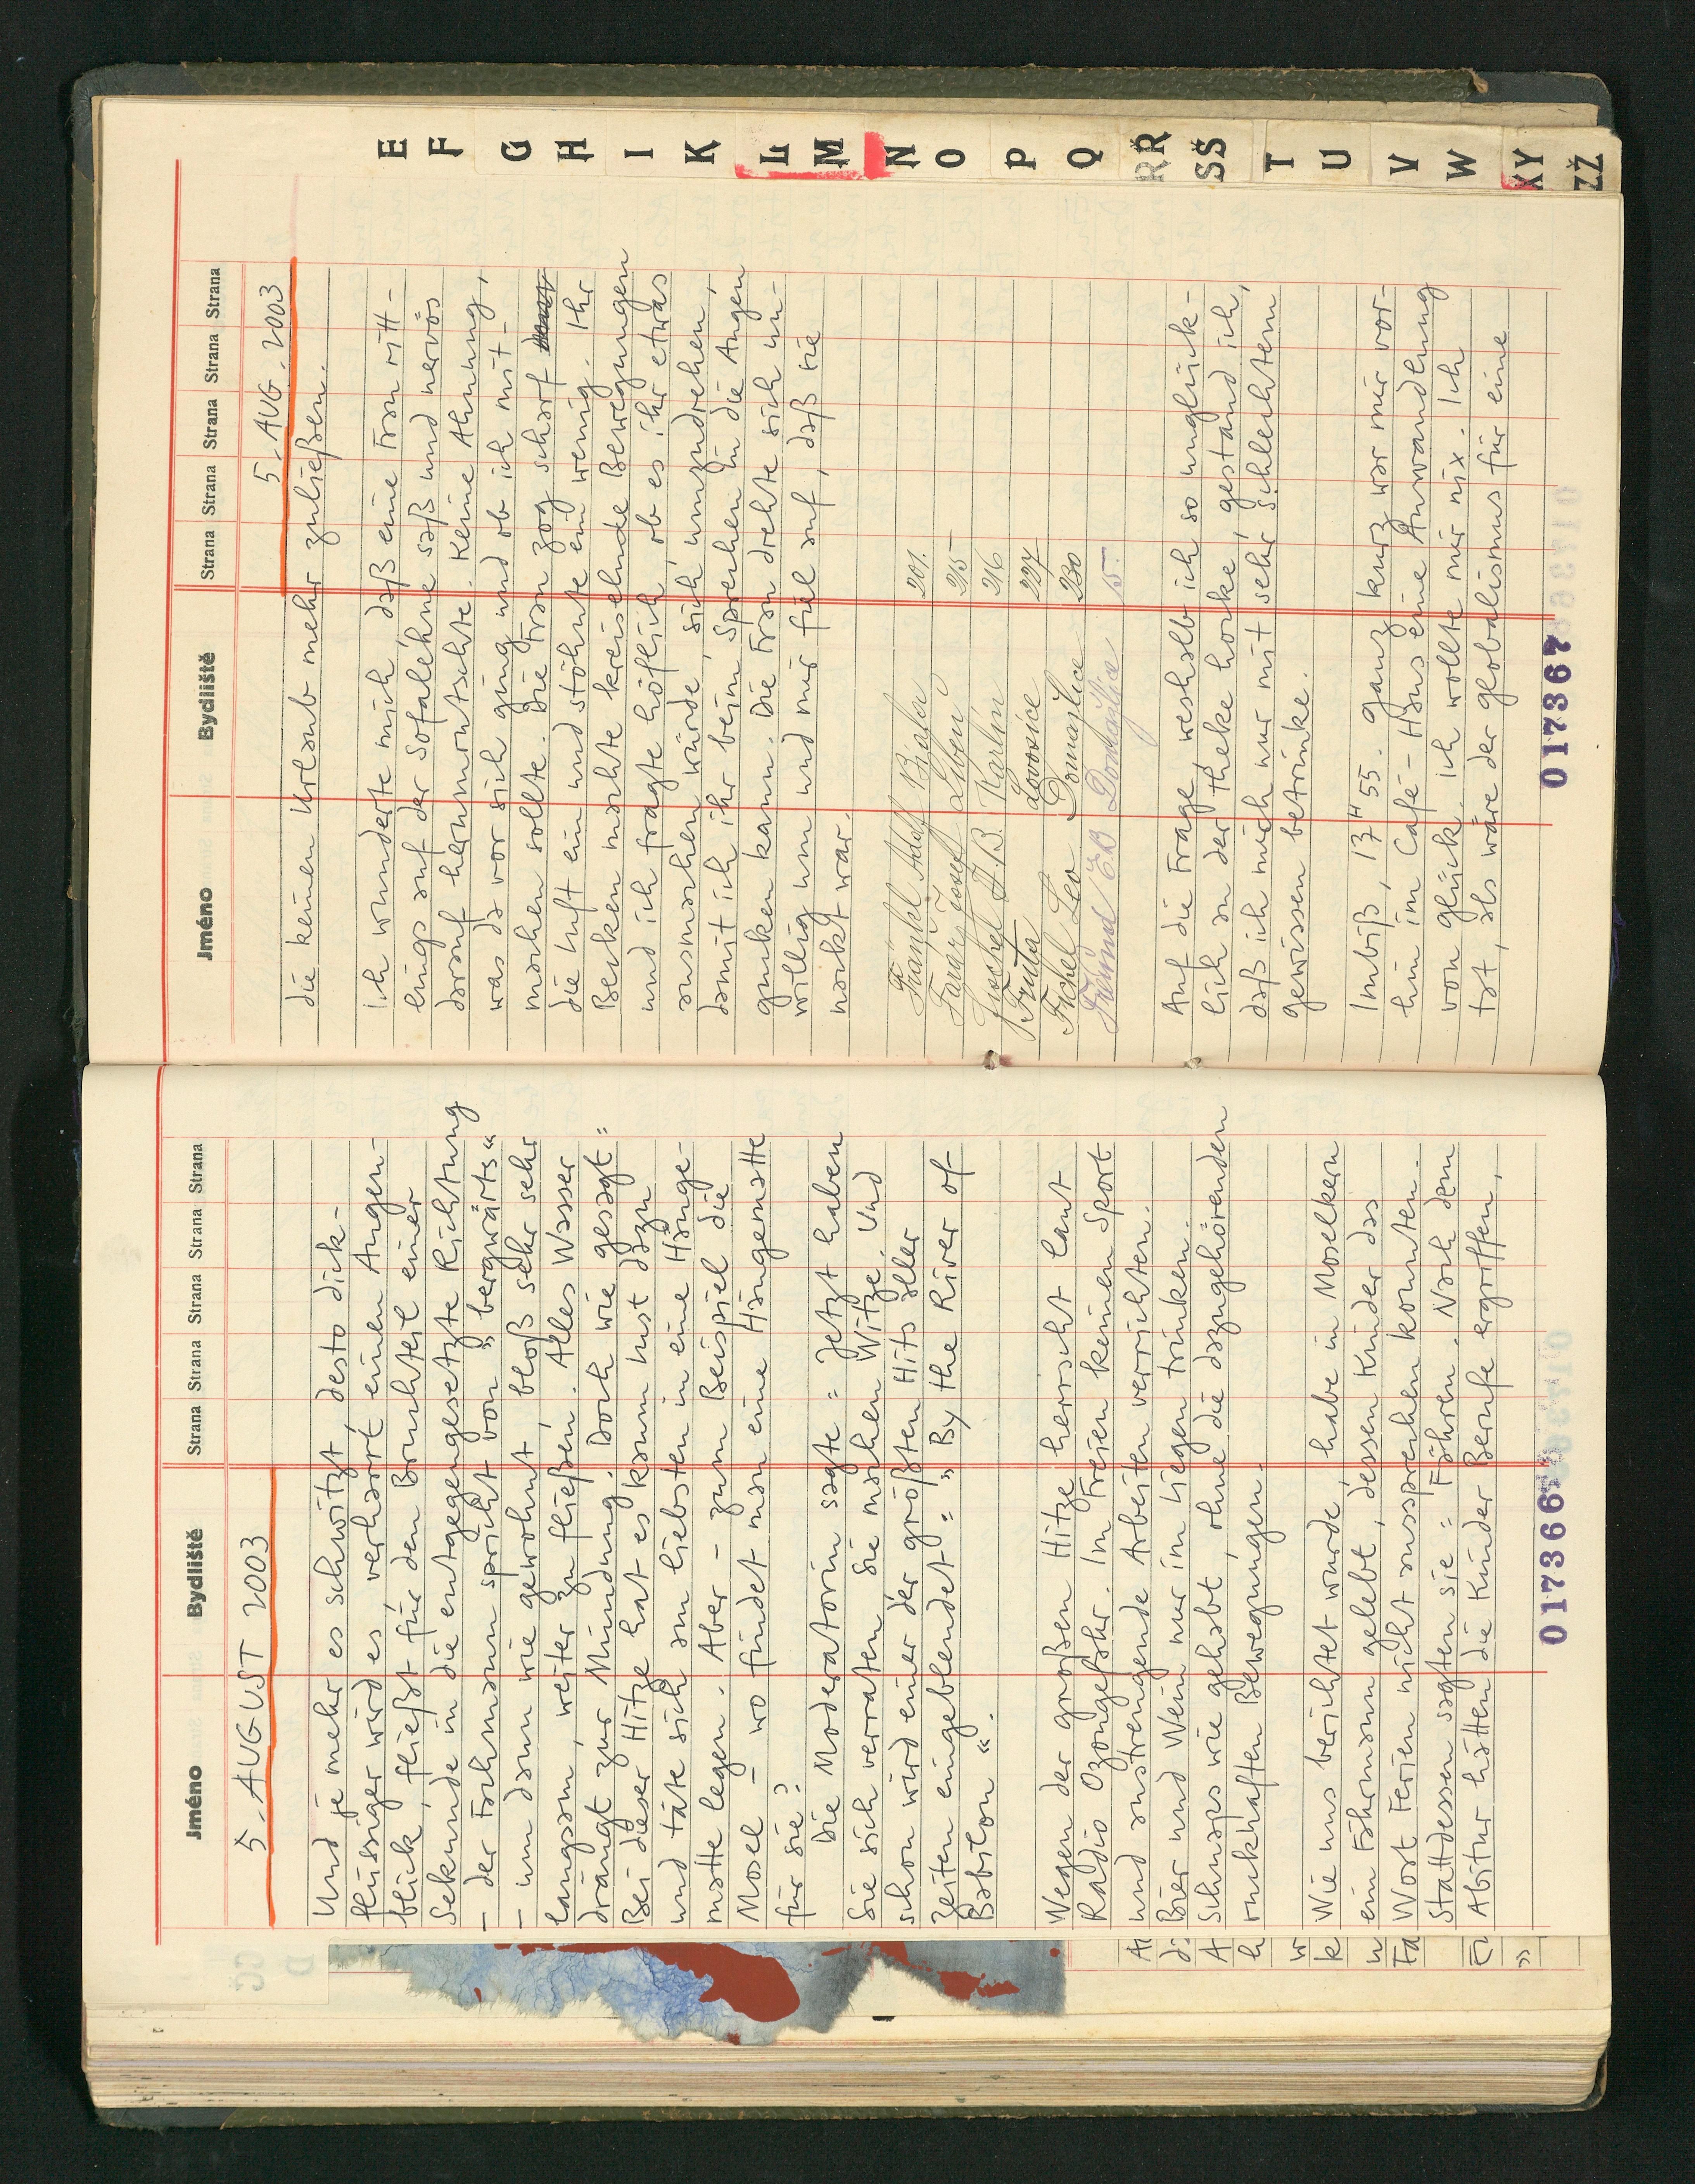 Jméno Bydliště Strana Strana Strana Strana Strana
5. AUGUST 2003
Und je mehr es schwitzt, desto dick-
flüssiger wird es, verharrt einen Augen-
blick, fließt für den Bruchteil einer
Sekunde in die entgegengesetzte Richtung
– der Fachmann spricht von „bergwärts“
– um dann wie gewohnt, bloß sehr sehr
langsam, weiter zu fließen. Alles Wasser
drängt zur Mündung. Doch wie gesagt:
Bei dieser Hitze hat es kaum Lust dazu
und täte sich am liebsten in eine Hänge-
matte legen. Aber – zum Beispiel die
Mosel – wo findet man eine Hängematte
für sie?
Die Moderatorin sagte: Jetzt haben
Sie sich verraten. Sie machen Witze. Und
schon wird einer der größten Hits aller
Zeiten eingeblendet: „By the River of
Babilon“.
Wegen der großen Hitze herrscht laut
Radio Ozongefahr. Im Freien keinen Sport
und anstrengende Arbeiten verrichten.
Bier und Wein nur im Liegen trinken.
Schnaps wie gehabt, ohne die dazugehörenden
ruckhaften Bewegungen.
Wie uns berichtet wurde, habe in Moselkern
ein Fährmann gelebt, dessen Kinder das
Wort Ferien nicht aussprechen konnten.
Stattdessen sagten sie: Fähren. Nach dem
Abitur hätten die Kinder Berufe ergriffen,
017366
Jméno Bydliště Strana Strana Strana Strana Strana
5. AUG. 2003
die keinen Urlaub mehr zuließen.
Ich wunderte mich, daß eine Frau ritt-
lings auf der Sofalehne saß und nervös
darauf herumrutschte. Keine Ahnung,
was da vor sich ging und ob ich mit-
machen sollte. Die Frau zog scharf
die Luft ein und stöhnte ein wenig. Ihr
Becken machte kreiselnde Bewegungen
und ich fragte höflich, ob es ihr etwas
ausmachen würde, sich umzudrehen,
damit ich ihr beim Sprechen in die Augen
gucken kann. Die Frau drehte sich un-
willig um und mir fiel auf, daß sie
nackt war.
Fränkl Adolf Bígha 201.
Josef Liben 215
J. B. Karlín 216
Fruta Lovosice 227
Fichel Leo Domažlice 230
ED Domažlice 15.
Auf die Frage, weshalb ich so unglück-
lich an der Theke hocke, gestand ich,
daß ich mich nur mit sehr schlechtem
Gewissen betrinke.
Imbiß, 17H 55. Ganz kurz war mir vor-
hin im Café-Haus eine Anwandlung
von Glück, ich wollte mir nix. Ich
tat, als wäre der Globalismus für eine
017367
E
F
G
H
I
K
L
M
N
O
P
Q
R Ř
S Š
T
U
V
W
X Y
Z Ž